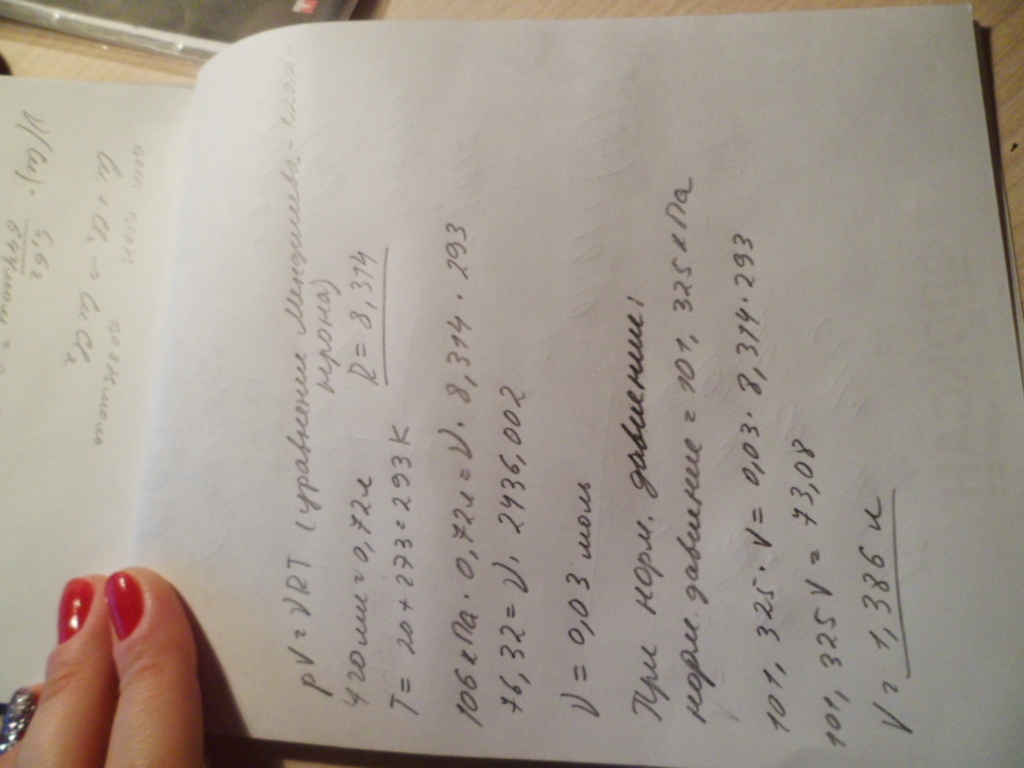 pV = νRT (уравнение Менделеева-
нерона)
420 мл = 0,72 л R = 8,314
T = 20 + 273 = 293 K
106 кПа · 0,72 л = ν · 8,314 · 293
76,32 = ν · 2436,002
ν = 0,03 моль
При норм. давлении,
норм. давление = 101,325 кПа
101,325 · V = 0,03 · 8,314 · 293
101,325 V = 73,08
V = 1,386 л
Cu + Cl₂ → CuCl₂
ν(Cu) =